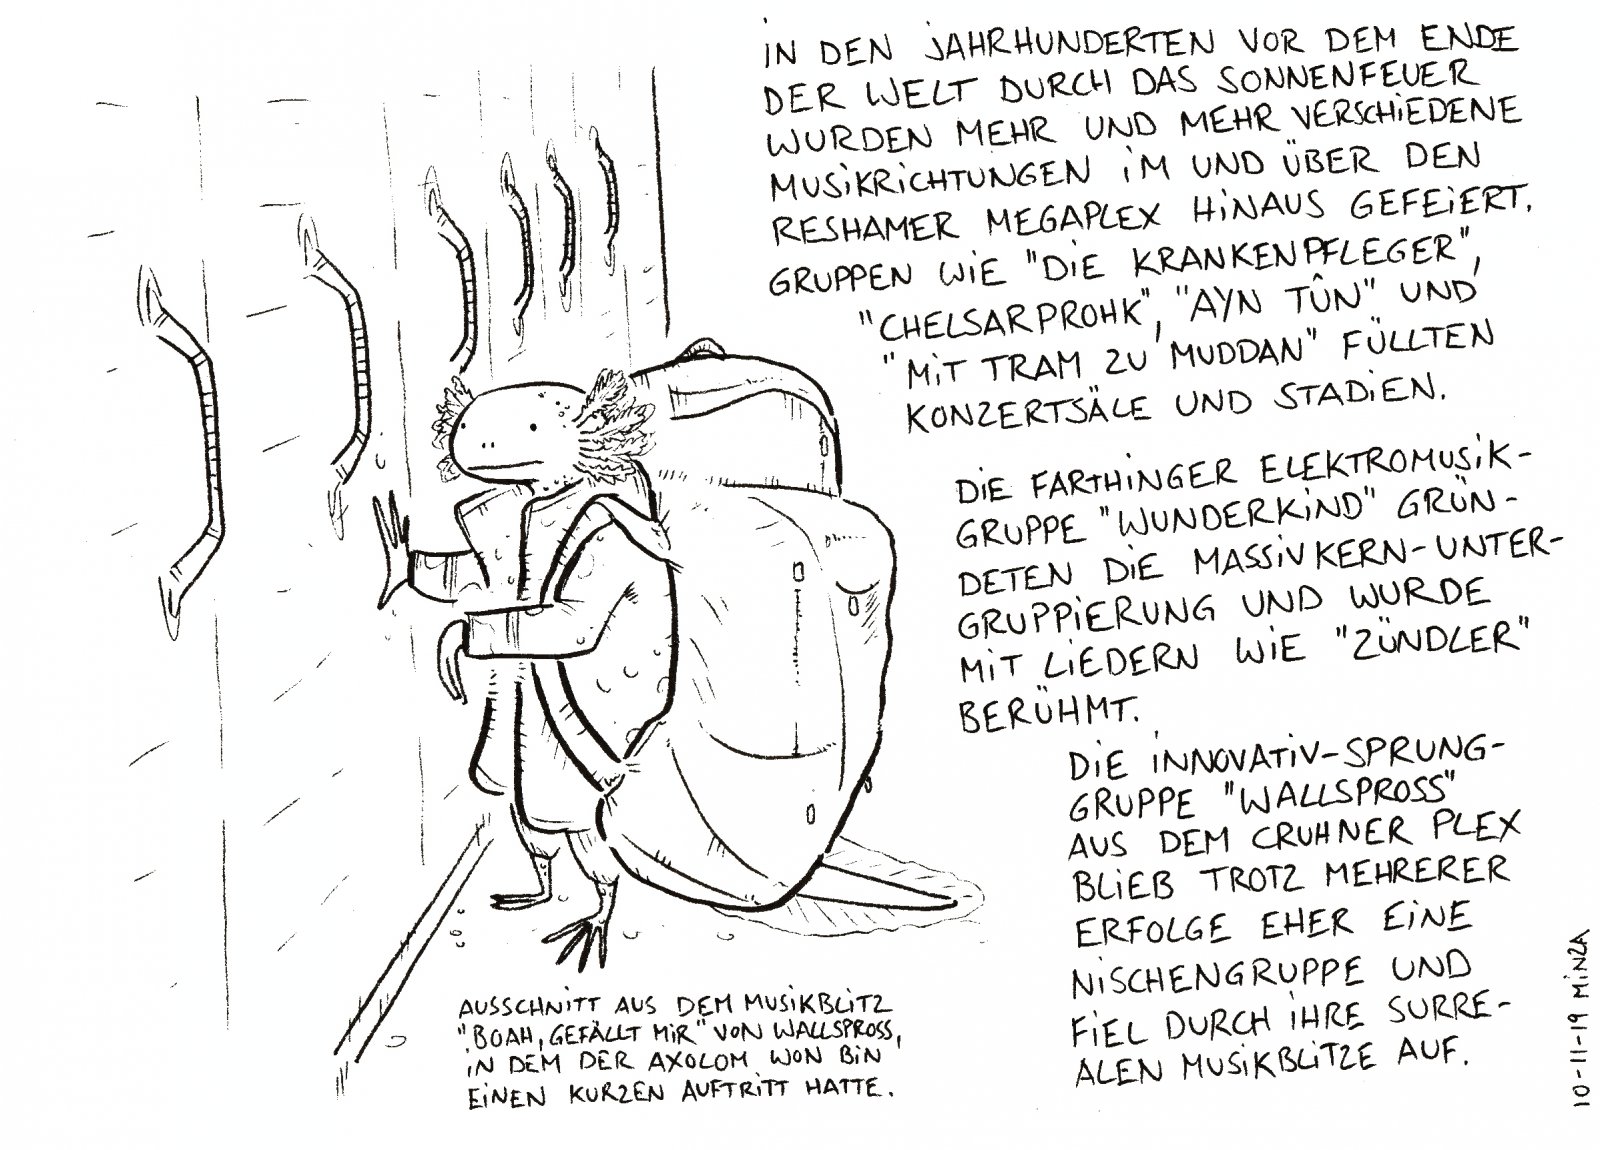 IN DEN JAHRHUNDERTEN VOR DEM ENDE
DER WELT DURCH DAS SONNENFEUER
WURDEN MEHR UND MEHR VERSCHIEDENE
MUSIKRICHTUNGEN IM UND ÜBER DEN
RESHAMER MEGAPLEX HINAUS GEFEIERT.
GRUPPEN WIE "DIE KRANKENPFLEGER",
"CHELSARPROHK", "AYN TÛN" UND
"MIT TRAM ZU MUDDAN" FÜLLTEN
KONZERTSÄLE UND STADIEN.
DIE FARTHINGER ELEKTROMUSIK-
GRUPPE "WUNDERKIND" GRÜN-
DETEN DIE MASSIVKERN-UNTER-
GRUPPIERUNG UND WURDE
MIT LIEDERN WIE "ZÜNDLER"
BERÜHMT.
DIE INNOVATIV-SPRUNG-
GRUPPE "WALLSPROSS"
AUS DEM CRUHNER PLEX
BLIEB TROTZ MEHRERER
ERFOLGE EHER EINE
NISCHENGRUPPE UND
FIEL DURCH IHRE SURRE-
ALEN MUSIKBLITZE AUF.
AUSSCHNITT AUS DEM MUSIKBLITZ
"BOAH, GEFÄLLT MIR" VON WALLSPROSS,
IN DEM DER AXOLOM WON BIN
EINEN KURZEN AUFTRITT HATTE.
10-11-19 MINZA